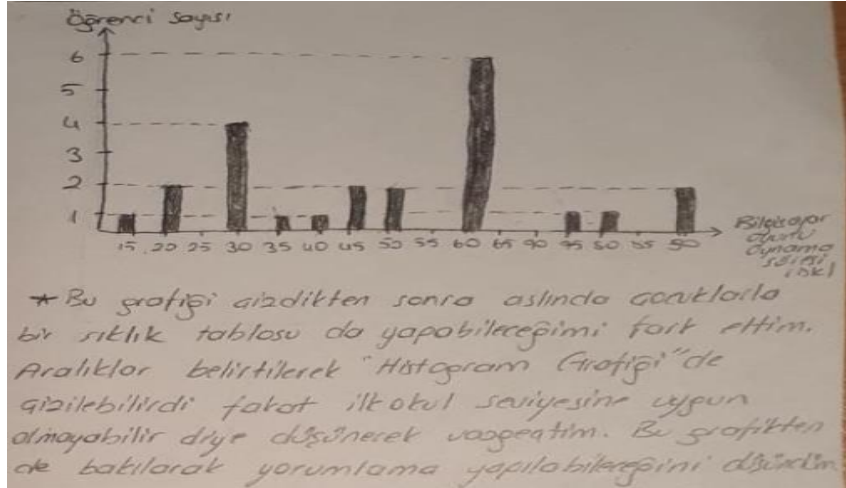 Öğrenci sayısı
6
5
4
3
2
1
15 20 25 30 35 40 45 50 55 60 65 90 75 80 85 90
Bilgisayar
oyunu
oynama
süresi
(dk)
* Bu grafiği çizdikten sonra aslında çocuklarla
bir sıklık tablosu da yapabileceğimi fark ettim.
Aralıklar belirtilerek "Histogram Grafiği" de
çizilebilirdi fakat ilkokul seviyesine uygun
olmayabilir diye düşünerek vazgeçtim. Bu grafikten
de bakılarak yorumlama yapılabileceğini düşündüm